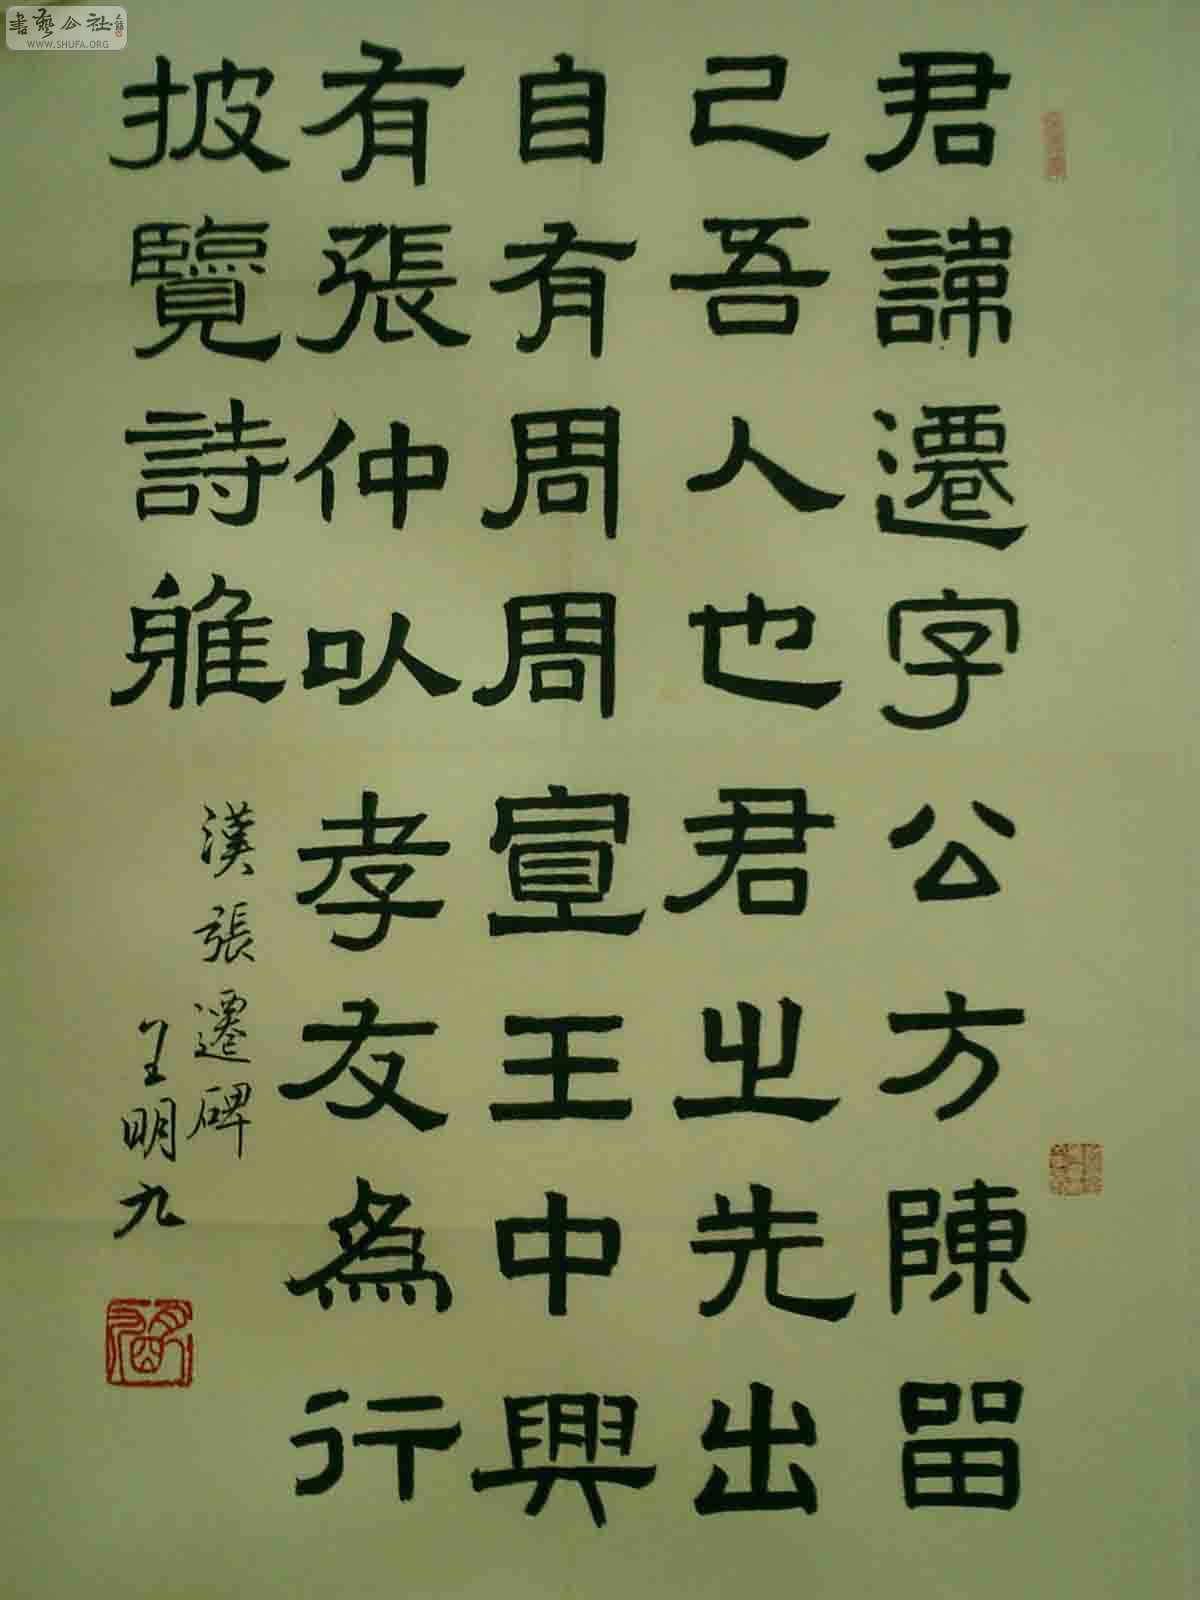 君諱遷字公方陳留
己吾人也君之先出
自有周周宣王中興
有張仲以孝友為行
披覽詩雅
漢張遷碑
王明九
書藝公社
WWW.SHUFA.ORG